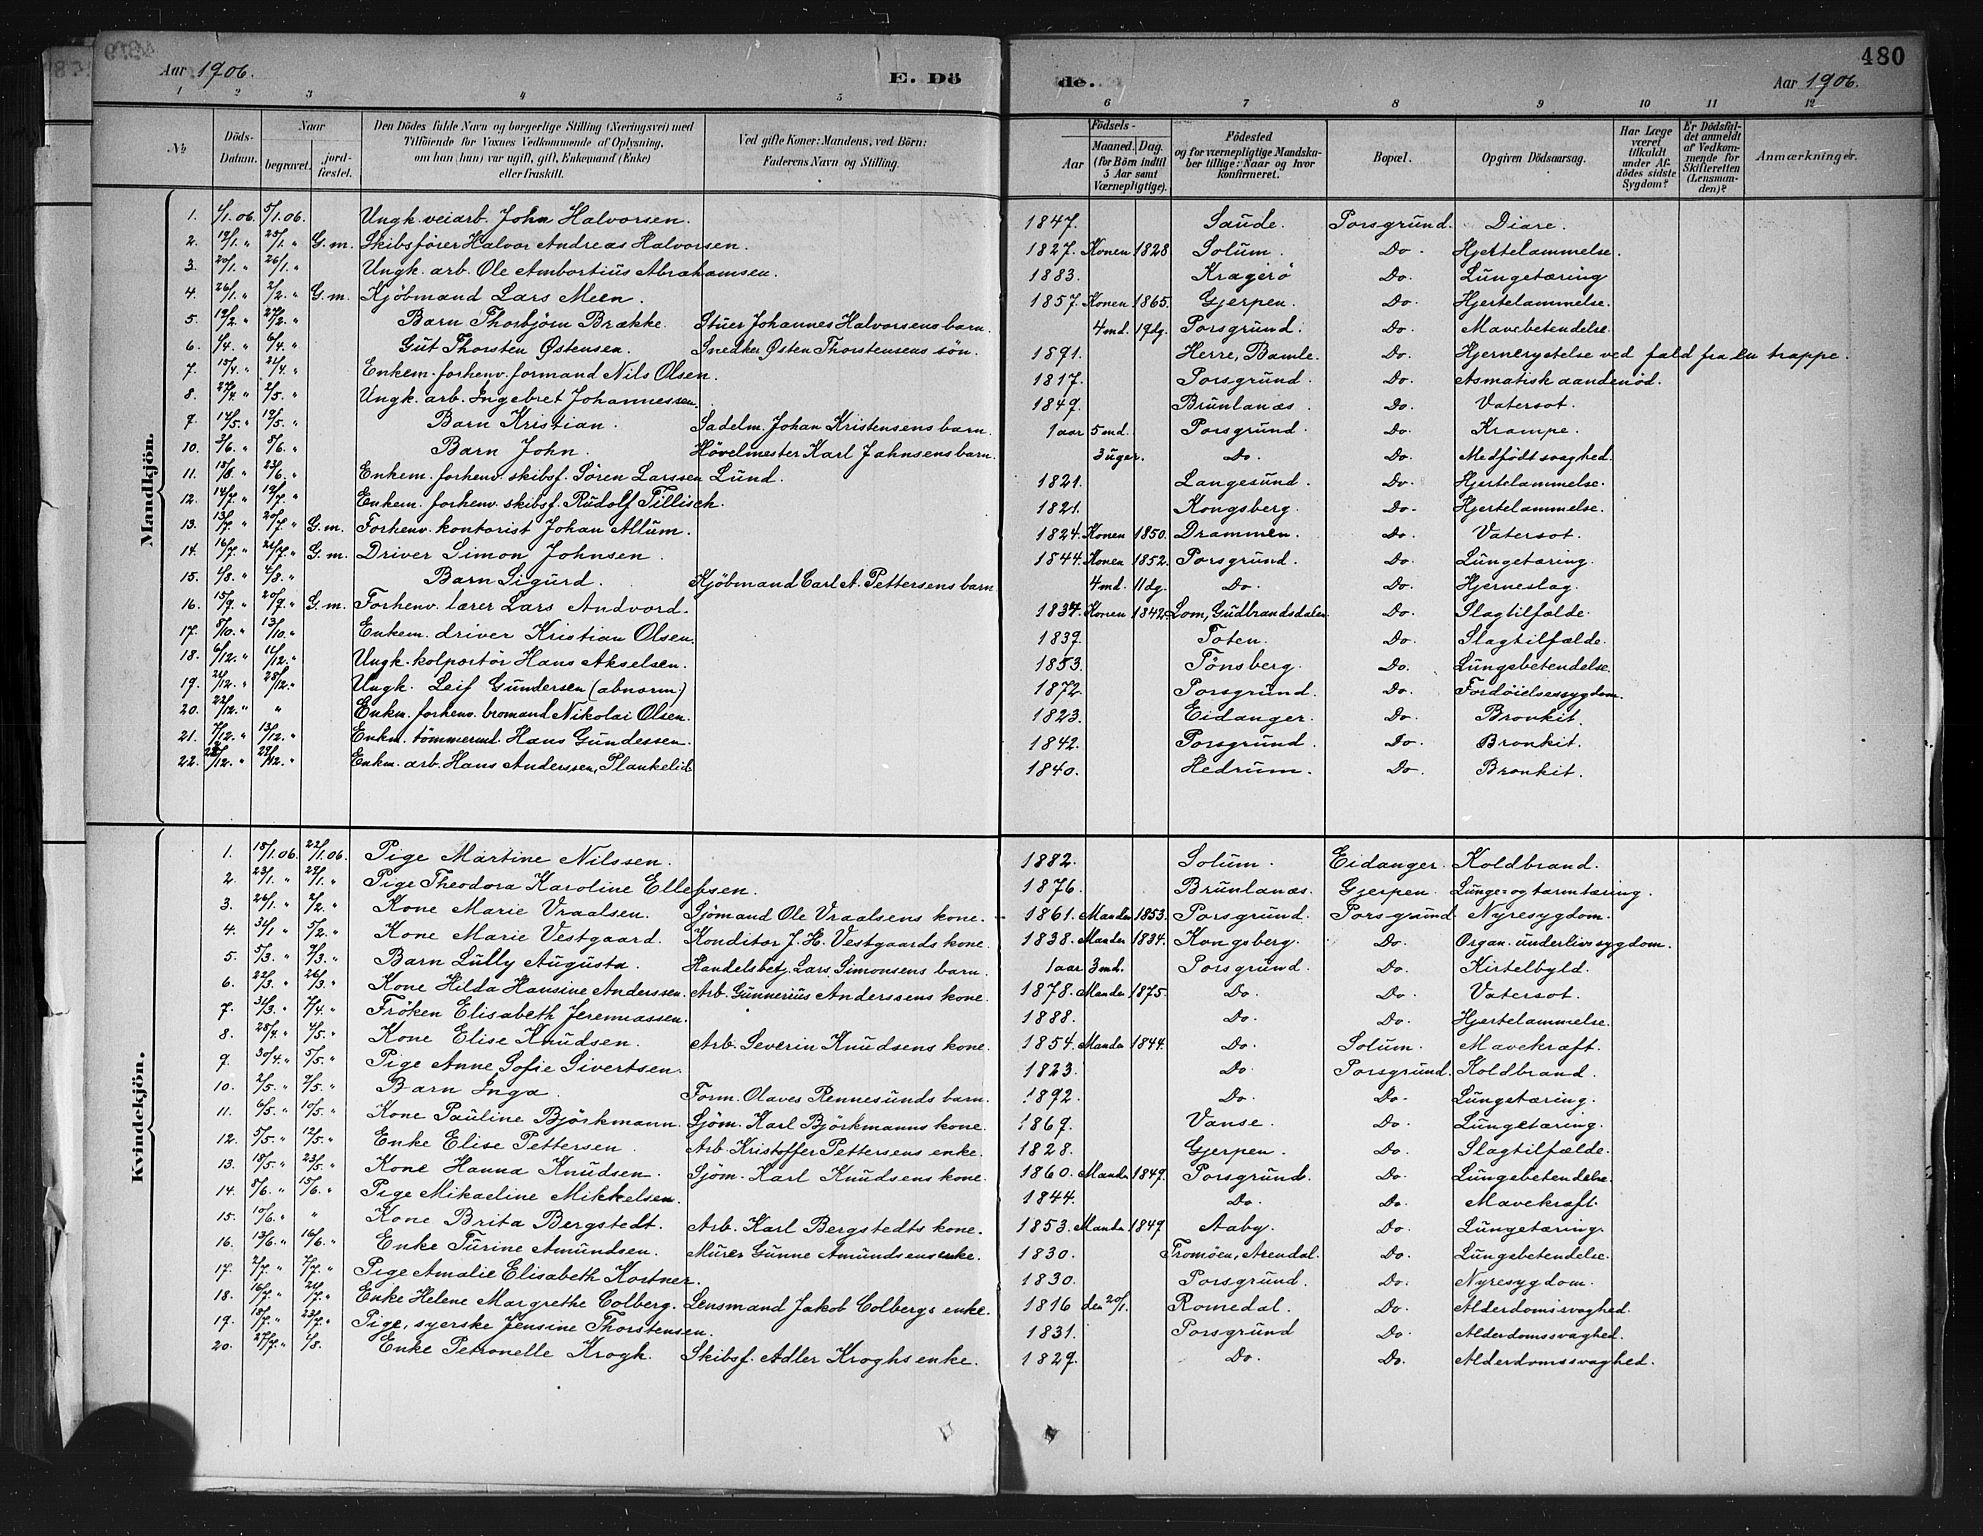 480
Aar 1906. E. Dö de. Aar 1906.
1 2 3 4 5 6 7 8 9 10 11 12
No. Döds-Datum. Naar begravet. jord-fæstet. Den Dödes fulde Navn og borgerlige Stilling (Næringsvei) med Tilföiende for Voxnes Vedkommende af Oplysning, om hun (hun) var ugift, gift, Enkemand (Enke) eller fraskilt. Ved gifte Koner: Mandens, ved Börn: Faderens Navn og Stilling. Födsels- Aar Maaned. Dag. (for Börn indtil 5 Aar samt Værnepligtige). Födested og for værnepligtige Mandska-ber tillige: Naar og hvor konfirmeret. Bopæl. Opgiven Dödsaarsag. Har Læge været tilkaldt under Af-dödes sidste Sygdom? Er Dödsfal-det anmeldt af Vedkom-mende for Skifteretten (Lensman-den)? Anmærkninger.
Mandkjön.
1. 4/1.06. 5/1.06. Ungk. veiarb. John Halvorsen. 1847. Saude. Porsgrund. Diare.
2. 19/1. " 25/1. " G.m. Skibsförer Halvor Andreas Halvorsen. 1827. Konen 1828 Solum. Do. Hjertelammelse.
3. 20/1. " 26/1. " Ungk. arb. Ole Ambortius Abrahamsen. 1883. Kragerö Do. Lungetæring
4. 26/1. " 2/2. " G.m. Kjöbmand Lars Meen. 1857. Konen 1865. Gjerpen. Do. Hjertelammelse.
5. 19/2. " 27/2. " Barn Thorbjörn Brække. Stuer Johannes Halvorsens barn. 4 md. 19 dg. Porsgrund. Do. Mavebetendelse.
6. 4/4. " 6/4. " Gut Thorsten Østensen. Snedker Østen Thorstensens sön. 1891. Herre, Bamle. Do. Hjernerystelse ved fald fra en trappe.
7. 15/4. " 21/4. " Enkem. forhenv. formand Nils Olsen. 1817. Porsgrund. Do. Asmatisk aandenöd.
8. 27/4. " 2/5. " Ungk. arb. Ingebret Johannessen. 1849. Brunlanæs. Do. Vatersot.
9. 14/5. " 19/5. " Barn Kristian. Sadelm. Johan Kristensens barn. 1 aar 5 md. Porsgrund. Do. Krampe.
10. 3/6. " 5/6. " Barn John. Hövelmester Karl Jahnsens barn. 3 uger. Do. Do. Medfödt svaghed.
11. 18/6. " 23/6. " Enkem. forhenv. skibsf. Sören Larssen Lund. 1821. Langesund. Do. Hjertelammelse.
12. 14/7. " 19/7. " Enkem. forhenv. skibsf. Rudolf Tillisch. 1821. Kongsberg. Do. Hjertelammelse.
13. 13/7. " 20/7. " G.m. Forhenv. kontorist Johan Allum. 1824. Konen 1850. Drammen. Do. Vatersot.
14. 16/7. " 21/7. " G.m. Driver Simon Johnsen. 1844. Konen 1852. Porsgrund. Do. Lungetæring.
15. 4/8. " 4/8. " Barn Sigurd. Kjöbmand Carl A. Pettersens barn 4 md. 11 dg. Do. Do. Hjerneslag.
16. 15/9. " 20/9. " G.m. Forhenv. lærer Lars Andvord. 1837. Konen 1842. Lom, Gudbrandsdalen Do. Slagtilfælde.
17. 8/10. " 13/10. " Enkem. driver Kristian Olsen. 1839. Toten. Do. Slagtilfælde.
18. 6/12. " 11/12. " Ungk. kolportör Hans Akselsen. 1853. Tönsberg. Do. Lungebetendelse.
19. 21/12. " 28/12. " Ungk. Leif Gundersen (abnorm.) 1872. Porsgrund. Do. Fordöielsessygdom.
20. 22/12. " " Enkm. forhenv. bromand Nikolai Olsen. 1823. Eidanger. Do. Bronkit.
21. 7/12. " 13/12. " Enkm. tömmermd. Hans Gundessen. 1842. Porsgrund. Do. Bronkit.
22. 23/12. " 29/12. " Enkm. arb. Hans Anderssen, Plankelid 1840. Hedrum. Do. Bronkit.
Kvindekjön.
1. 18/1.06. 22/1.06. Pige Martine Nilssen. 1882. Solum. Eidanger. Koldbrand.
2. 23/1. " 29/1. " Pige Theodora Karoline Ellefsen. 1876. Brunlanæs. Gjerpen. Lunge- og tarmtæring.
3. 26/1. " 2/2. " Kone Marie Vraalsen. Sjömand Ole Vraalsens kone. 1861. Manden 1853. Porsgrund. Porsgrund Nyresygdom.
4. 31/1 " 5/2. " Kone Marie Vestgaard. Konditor J. H. Vestgaards kone. 1838. Manden 1834. Kongsberg. Do. Organ. underlivssygdom.
5. 5/3. " 7/3. " Barn Lully Augusta. Handelsbetj. Lars Simonsens barn. 1 aar 3 md. Porsgrund. Do. Kirtelbyld.
6. 22/3. " 26/3. " Kone Hilda Hansine Anderssen. Arb. Gunnerius Anderssens kone. 1878. Manden 1875. Do. Do. Vatersot.
7. 31/3. " 7/4. " Fröken Elisabeth Jeremiassen. 1888. Do. Do. Hjertelammelse.
8. 28/4. " 4/5. " Kone Elise Knudsen. Arb. Severin Knudsens kone. 1854. Manden 1844. Do. Solum. Mavekræft.
9. 30/4. " 5/5. " Pige Anne Sofie Sivertsen. 1823. Do. Porsgrund. Koldbrand.
10. 2/5. " 9/5. " Barn Inga. Form. Olaves Rennesunds barn. 1892. Do. Do. Lungetæring.
11. 6/5. " 10/5. " Kone Pauline Björkmann. Sjöm. Karl Björkmanns kone. 1869. Vanse. Do. Lungetæring.
12. 5/5. " 12/5. " Enke Elise Pettersen. Arb. Kristoffer Pettersens enke. 1828. Gjerpen. Do. Slagtilfælde.
13. 18/5. " 23/5. " Kone Hanna Knudsen. Sjöm. Karl Knudsens kone. 1860. Manden 1849. Porsgrund. Do. Lungebetendelse.
14. 8/6. " 15/6. " Pige Mikaeline Mikkelsen. 1844. Do. Do. Mavekræft.
15. 10/6. " " Kone Brita Bergstedt. Arb. Karl Bergstedts kone. 1853. Manden 1849 Aaby. Do. Lungetæring.
16. 13/6. " 16/6. " Enke Turine Amundsen. Murer Gunne Amundsens enke. 1830. Tromöen, Arendal. Do. Lungebetendelse.
17. 2/7. " 7/7. " Pige Amalie Elisabeth Kortner. 1830. Porsgrund. Do. Nyresygdom.
18. 16/7. " 21/7. " Enke Helene Margrethe Colberg. Lensmand Jakob Colbergs enke. 1816 den 20/1. Romedal. Do. Alderdomssvaghed.
19. 18/7. " 23/7. " Pige, syerske Jensine Thorstensen. 1831. Porsgrund Do. Alderdomssvaghed.
20. 27/7. " 4/8. Enke Petronelle Krogh. Skibsf. Adler Kroghs enke. 1829. Do. Do. Alderdomssvaghed.